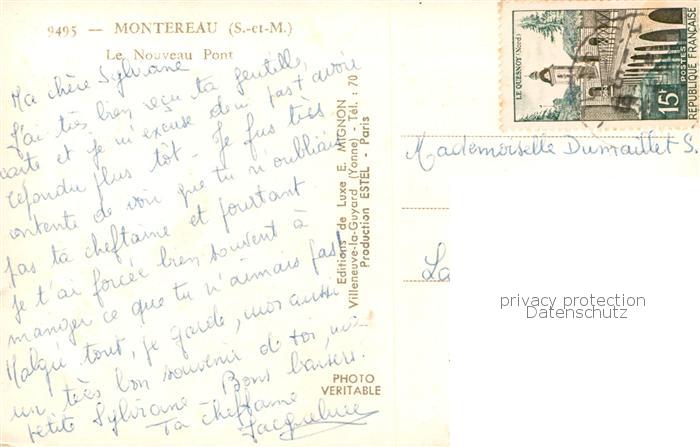 9495 — MONTEREAU (S.-et-M.)
Le Nouveau Pont
Ma chère Sylviane
J'ai très bien reçu ta gentille
carte et je m'excuse de n' pas t'avoir
répondu plus tôt - Je fus très
contente de voir que tu n'oubliais
pas ta cheftaine et pourtant
je t'ai forcée bien souvent à
manger ce que tu n'aimais pas!
Malgré tout, je garde, moi aussi
un très bon souvenir de toi, ma
petite Sylviane - Bons baisers.
Ta cheftaine
Jacqueline
Editions de Luxe E. MIGNON
Villeneuve-la-Guyard (Yonne) - Tél. : 70
Production ESTEL - Paris
PHOTO
VERITABLE
LE QUESNOY (Nord)
15F
POSTES
REPUBLIQUE FRANÇAISE
Mademoiselle Dumaillet S.
La
privacy protection
Datenschutz